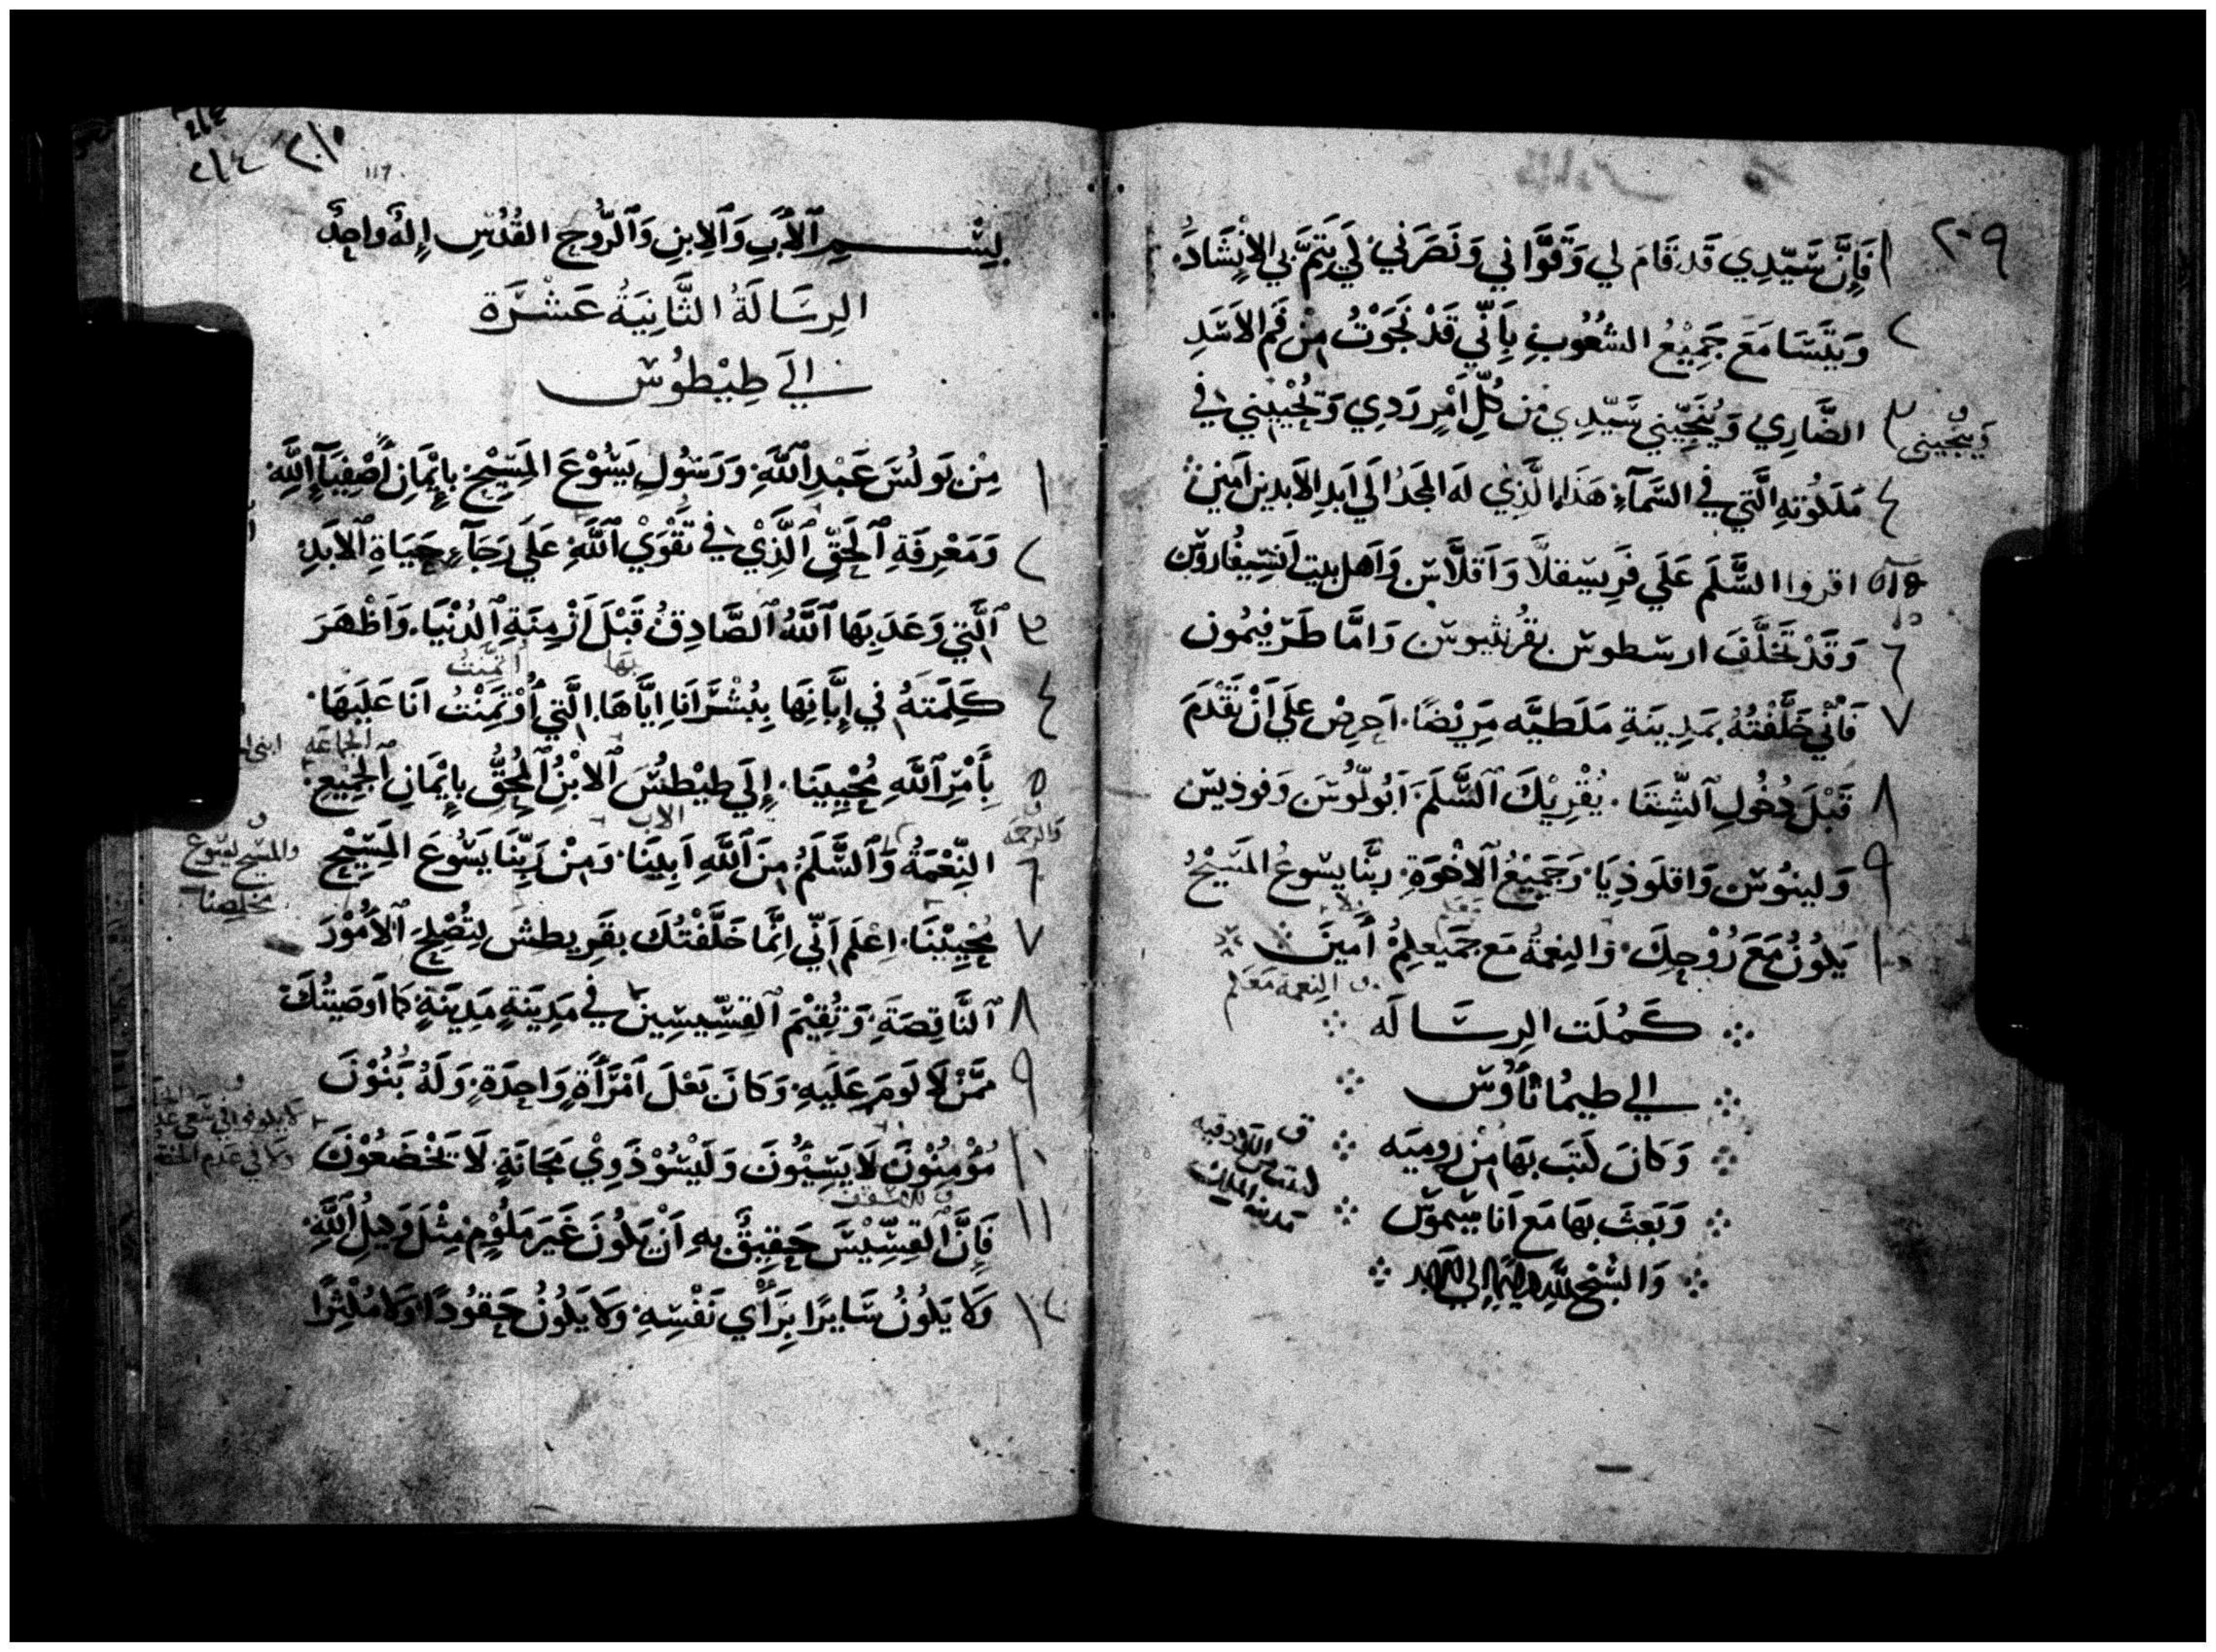 ٢٠٩
١ فَإِنَّ سَيِّدِي قَد قَامَ لِي وَقَوَّانِي وَنَصَرَنِي لَكِي يَتِمَّ بِي الإِنْشَادُ
٢ وَيَتَسَامَعَ جَمِيْعُ الشُعُوبِ بِاَنِّي قَدْ نَجَوْتُ مِنْ فَمِ الاَسَدِ
٣ الضَّارِي وَيُنَجِّيني سَيِّدِي مِن كُلِّ اَمْرٍ رَدِي وَيُحْيِيْنِي فِي
وَيُنْجيني
٤ مَلَكُوتِهِ الَّتِي فِي السَّمَآءِ هَذَا الَّذِي لَهُ المَجدُ اِلَي اَبَدِ الاَبدِين اَمين
٥ اقروا السَّلَم عَلَي فَرِيسقلَّا وَاَقلاَّس وَاَهل بيت اَنسيفاروس
٦ وَقَدْ تَخَلَّفَ ارسطوس بقُرنثيوس وَامَّا طَرفيمُون
٧ فَاَنِّي خَلَّفْتُهُ بمَدِينَةِ مَلَطيَّه مَرِيْضًا اَحرِصْ عَلَي اَنْ تَقْدَمَ
٨ قَبْلَ دُخُولِ اَلشِّتَا يُقْرِيْكَ اَلسَّلَمَ اَبُولُّوُسَ وَفوذيس
٩ وَلينُوس وَاقلَوذِيَا وَجَمِيْعُ اَلاخْوَةِ رَبَّنا يسوعُ المَسِيْحُ
١٠ يَكُونُ مَعَ رُوْحِكَ وَالنِعمَةُ مَع جَميعِكُمْ اَمِينَ
النِعمة مَعَكم
كَمُلَت الرِسَالَه
الي طيمُاثَاوُس
وَكانَ كَتَبَ بَهَا مِنْ رُومِيَه
وَبَعَثَ بهَا مَع اَنَاسيموس
٢١٠
٢١٤
117
بِسْمِ اَلاَبِ وَاَلاِبنِ وَاَلرُّوحِ القُدُسِ اِلَهٌ وَاحِدٌ
الرِسَالَةُ الثَّانِيَةُ عَشْرَة
الَي طِيْطُوُس
١ مِنْ بَولُسَ عَبْدِ اَللَّهِ وَرَسُولِ يَسُوْعَ المَسِيْحِ بِإِيْمَانِ اَصْفِيَآءِ اللَّهِ
٢ وَمَعْرِفَةِ اَلحَقِّ اَلَّذِيْ فِي تَقْوَيْ اَللَّهِ عَلَي رَجَآءِ حَيَاةِ اَلاَبَدِ
٣ اَلَّتِي وَعَدَ بِهَا اَللَّهُ اَلصَّادِقُ قَبْلَ اَزْمِنَةِ اَلدُنْيَا وَاَظْهَرَ
بها ائتُمِنْتُ
٤ كَلِمَتَهُ فِي إِبَّانِهَا بِبُشْرَانَا اِيَّاهَا الَّتِي اُوْتُمِنْتُ اَنَا عَلَيهَا
الجماعَه
٥ بِأَمْرِ اَللَّهِ مُحْيِينَا إِلَي طيْطُسَ اَلابْنُ اَلمُحِقُّ بِإِيْمَانِ اَلجَمِيْعِ
الاب
وَالرحمَه
٦ النِّعْمَةُ وَاَلسَّلَمُ مِنَ اَللَّهِ اَبِينَا وَمِنْ رَبِّنَا يَسُوعَ المَسِيْحِ
والمسيح يسوع
مخلصنا
٧ مُحْيِيْنَا اِعْلَم اَنِّي اِنَّمَا خَلَّفْتُكَ بقَرِيطِسَ لِتُصْلِحَ اَلاُمُوْرَ
٨ اَلنَّاقِصَةِ وَتُقِيْمَ اَلقِسِّيسِينَ فِي مَدِيْنَةٍ مَدِينَةٍ كَمَا اَوصَيتُكَ
٩ مِمَّنْ لاَ لَومَ عَلَيهِ وَكَانَ بَعْلَ اَمْرَأَةٍ وَاحِدَةٍ وَلَهُ بَنُوْنَ
١٠ مُؤْمِنُوْنَ لاَ يَسِبُّونَ وَلَيْسُوْ ذَوِيْ مَجَانَةٍ لاَ تَخْضَعُوْنَ
للاسقف
١١ فَإِنَّ اَلقِسِّيْسَ حَقِيْقٌ بِهِ اَنْ يَكُونَ غَيرَ مَلُوْمٍ مِثْلَ وَكِيلِ اَللَّهِ
١٢ وَلاَ يَكُونُ سَايرًا بِرَأْيِ نَفْسِهِ وَلاَ يَكُونُ حَقُودًا وَلاَ مُكْثِرًا